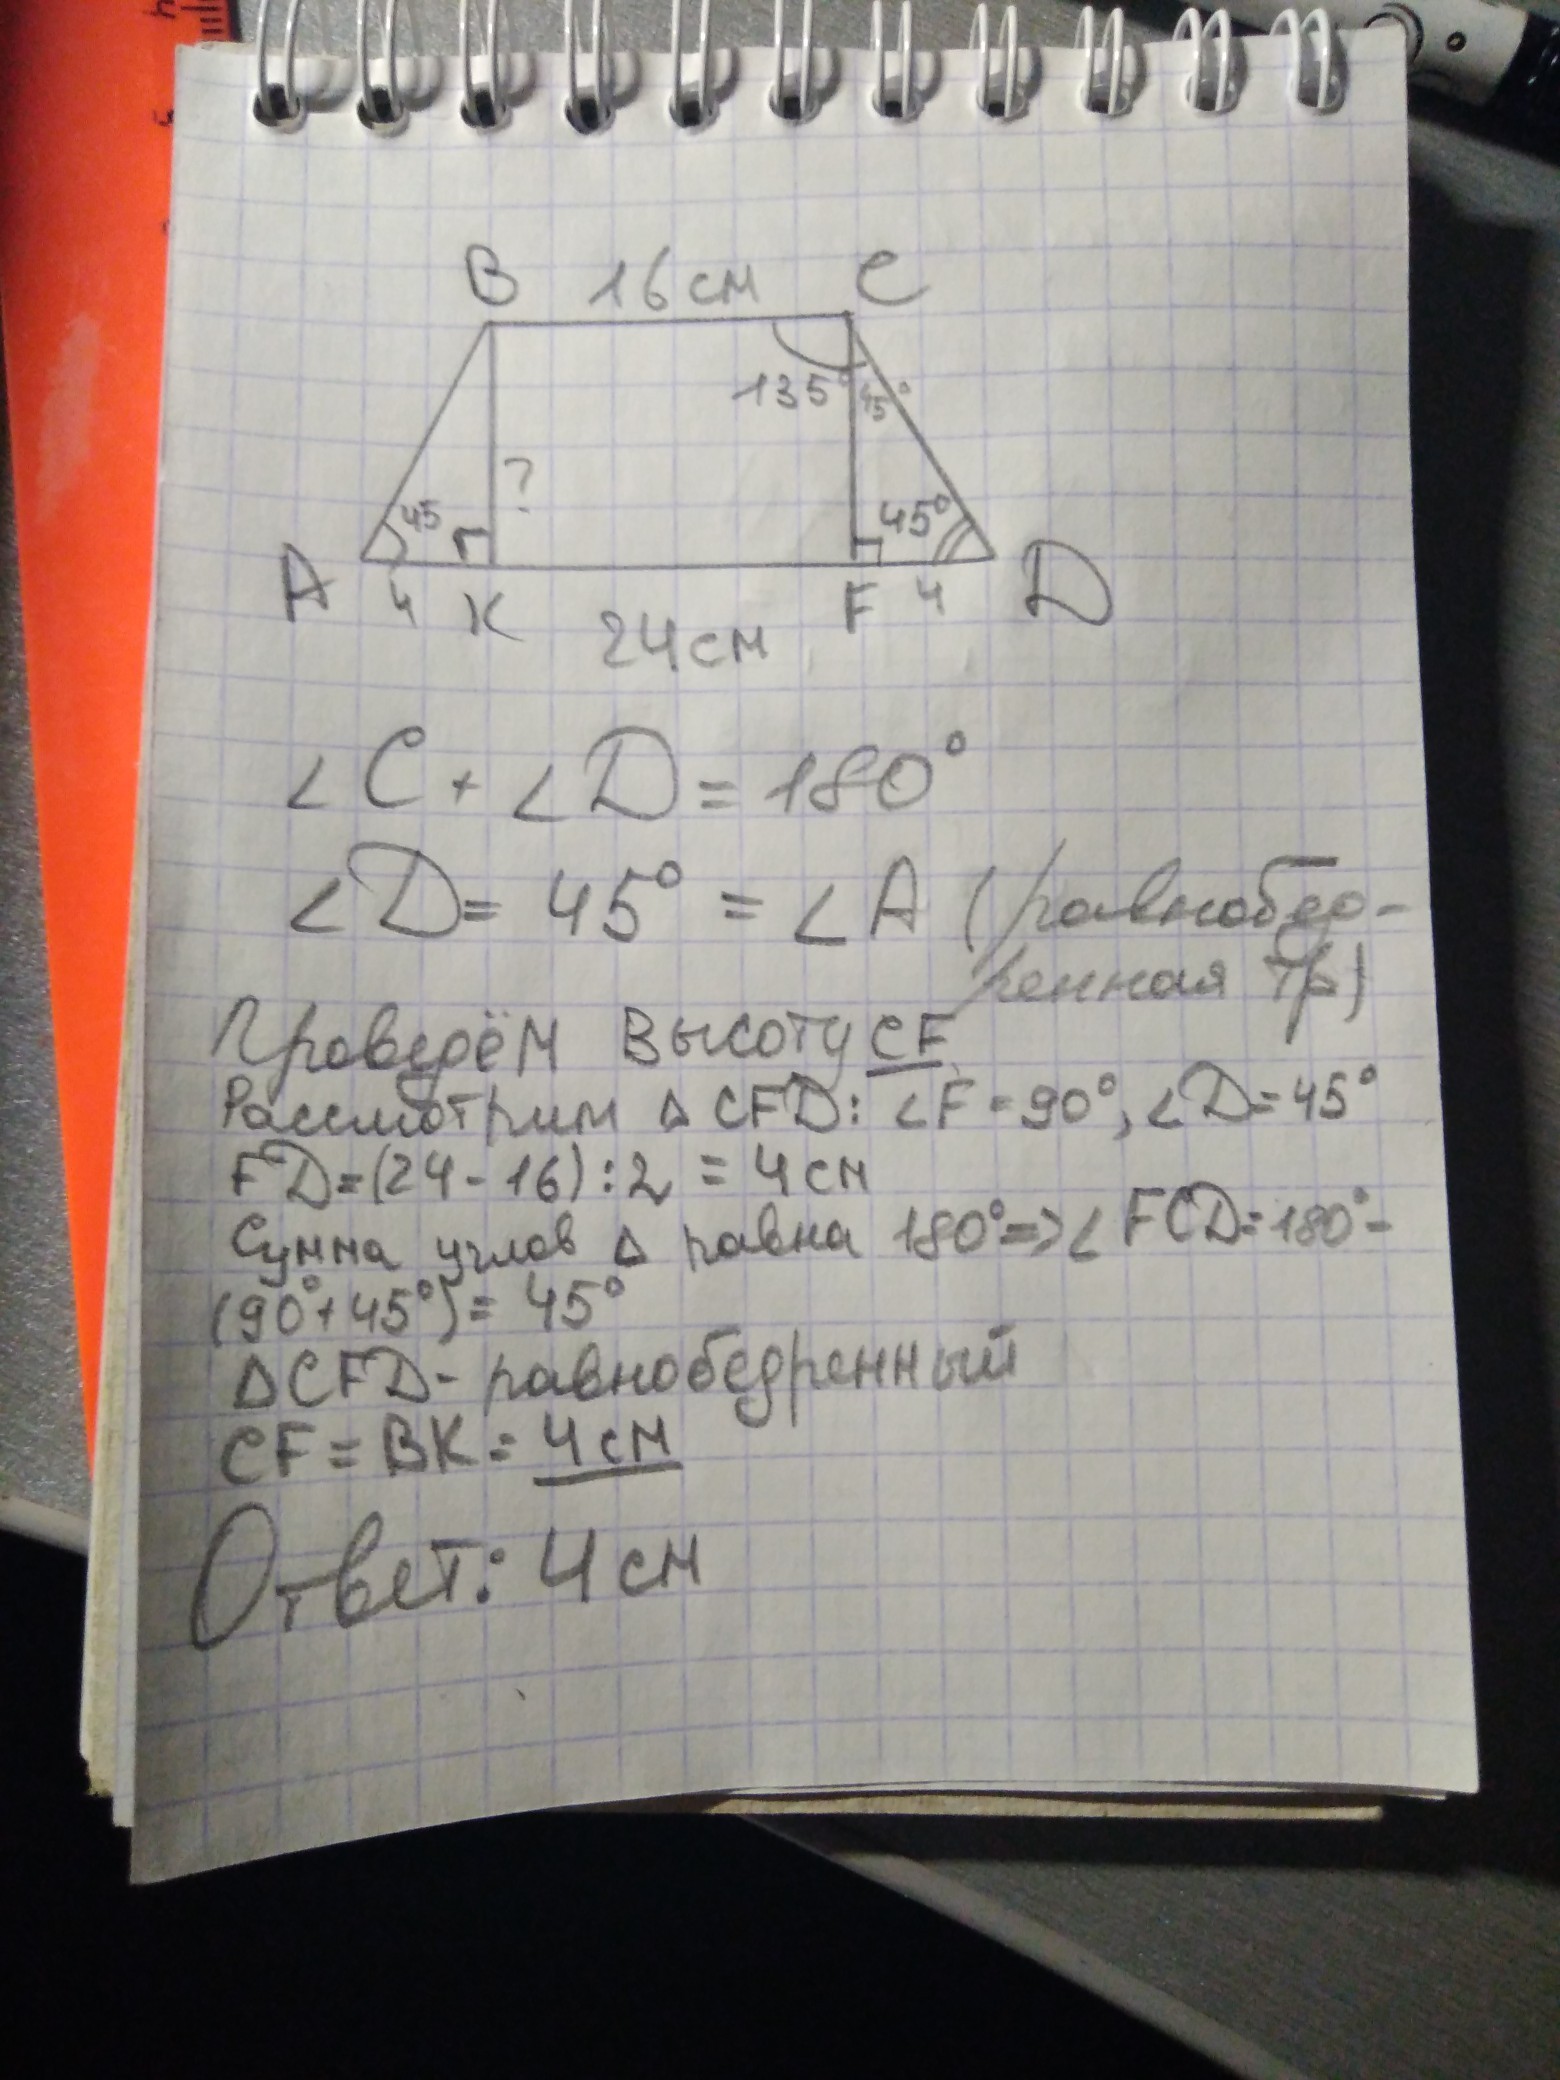 B 16 см C
135° 45°
?
45 45°
A 4 K F 4 D
24 см
∠C + ∠D = 180°
∠D = 45° = ∠A (равнобед-
ренная тр)
Проведём высоту CF
Рассмотрим △ CFD: ∠F = 90°, ∠D = 45°
FD = (24 - 16) : 2 = 4 см
Сумма углов △ равна 180° => ∠FCD = 180° -
(90° + 45°) = 45°
△CFD - равнобедренный
CF = BK = 4 см
Ответ: 4 см